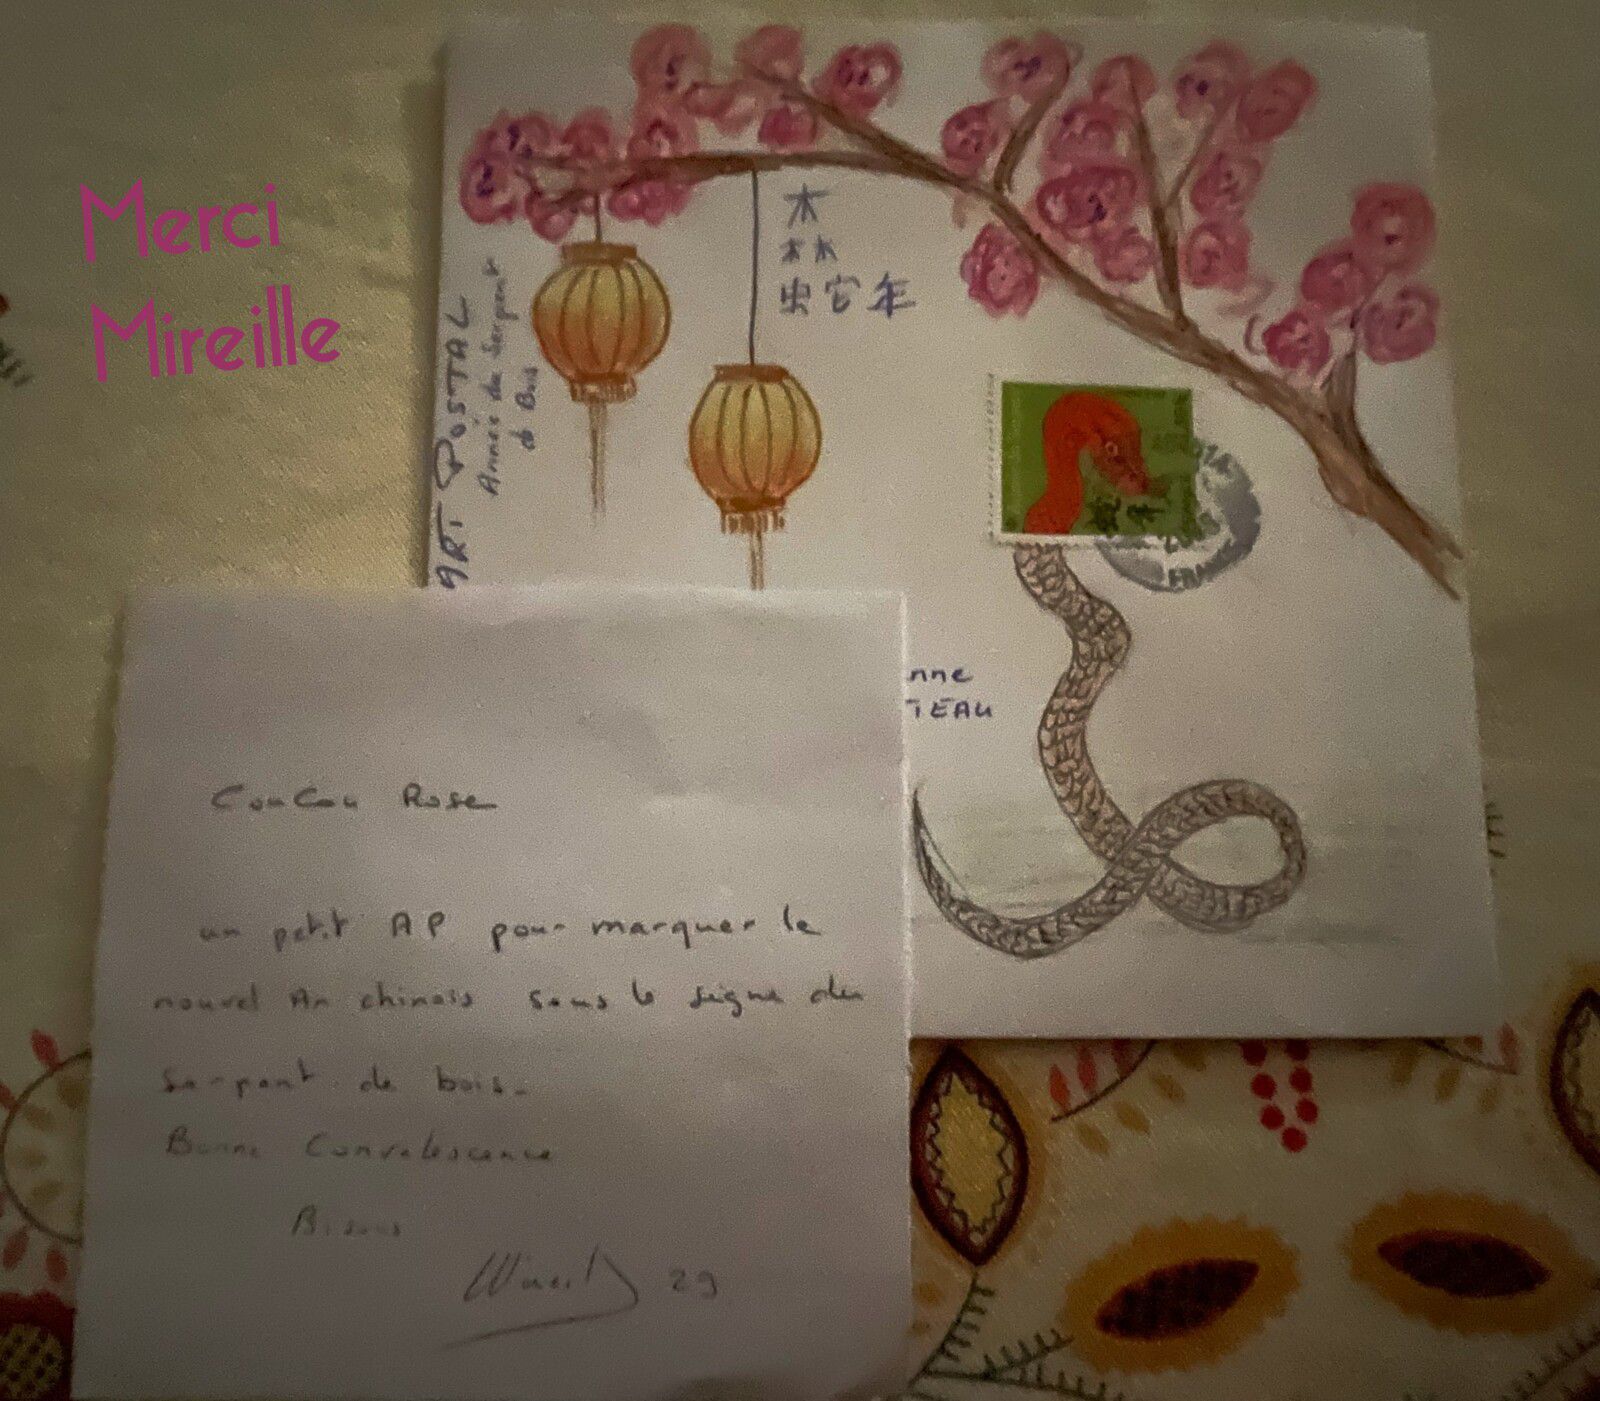 Merci
Mireille
ART POSTAL
Année du Serpent
de Bois
木
木木
虫它年
蛇年
FRAN
nne
TEAU
CouCou Rose
un petit AP pour marquer le
nouvel An chinois sous le signe du
serpent de bois.
Bonne Convalescence
Bisous
Mireille 29